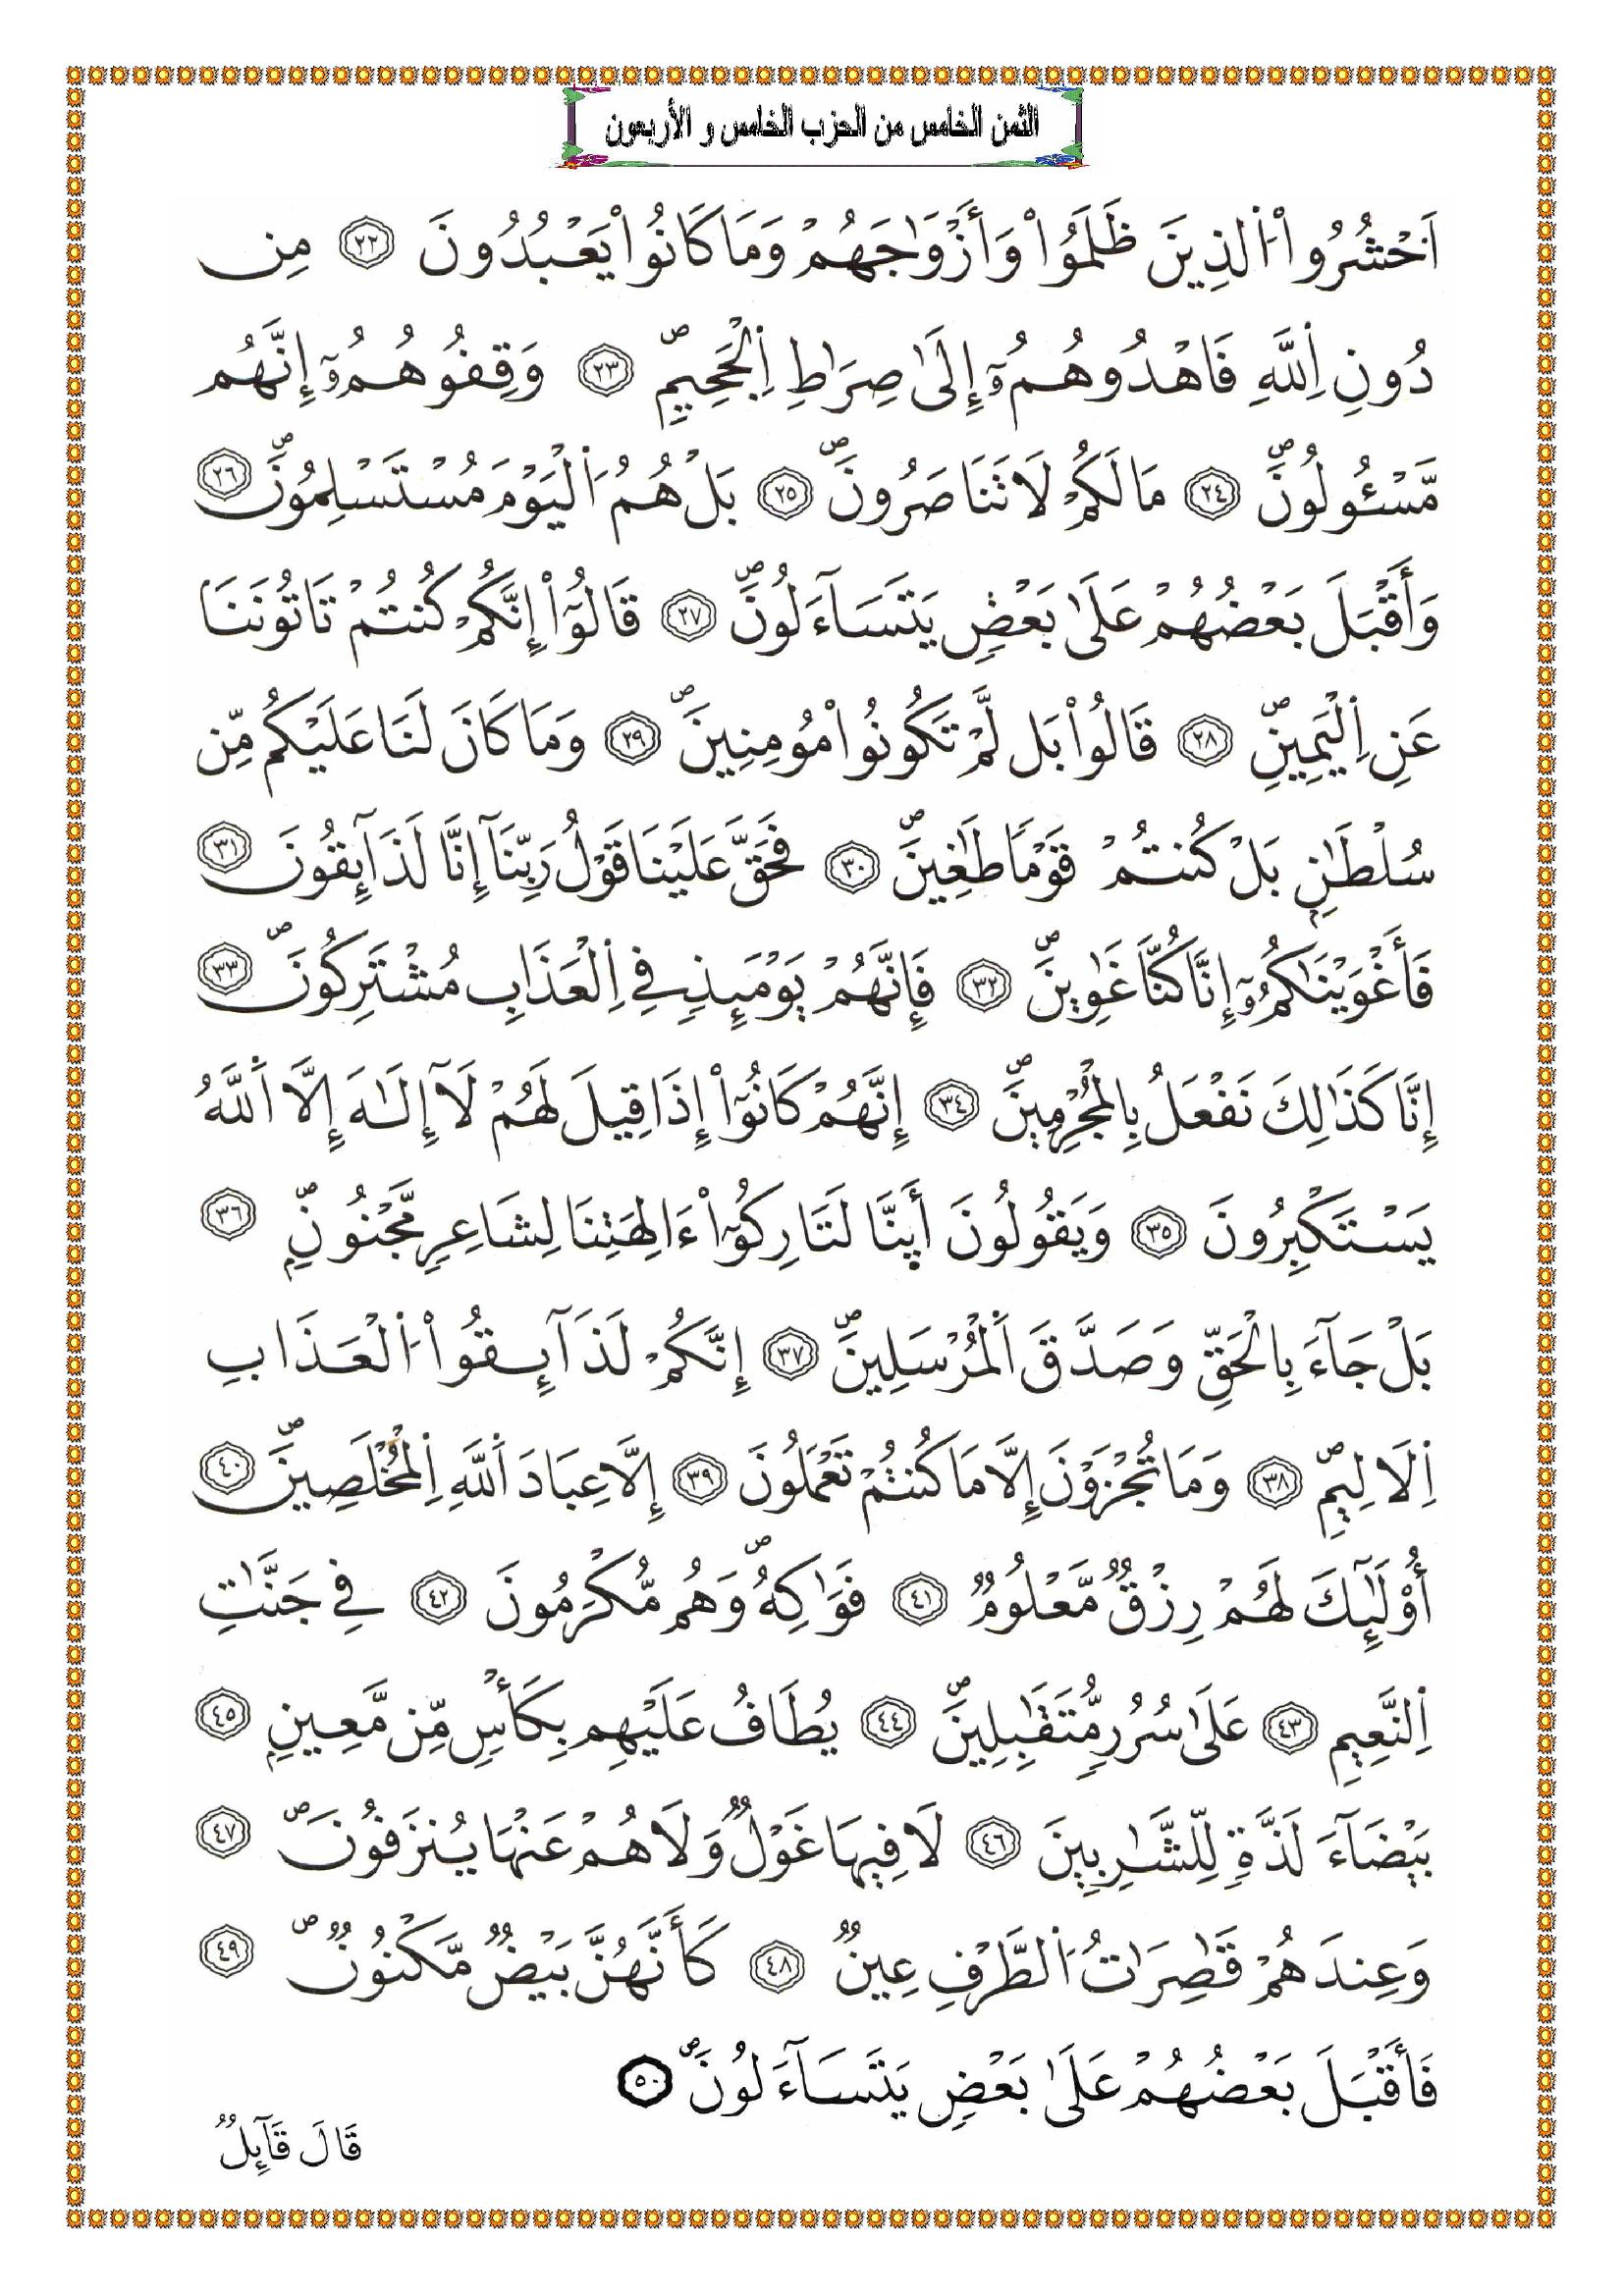 الثمن الخامس من الحزب الخامس و الأربعون
اَحْشُرُواْ اُ۬لذِينَ ظَلَمُواْ وَأَزْوَٰجَهُمْ وَمَا كَانُواْ يَعْبُدُونَ ٢٢ مِن
دُونِ اِ۬للَّهِ فَاهْدُوهُمُۥٓ إِلَىٰ صِرَٰطِ اِ۬لْجَحِيمِۖ ٢٣ وَقِفُوهُمُۥٓ إِنَّهُم
مَّسْـُٔولُونَۖ ٢٤ مَا لَكُمْ لَا تَنَاصَرُونَۖ ٢٥ بَلْ هُمُ اُ۬لْيَوْمَ مُسْتَسْلِمُونَۖ ٢٦
وَأَقْبَلَ بَعْضُهُمْ عَلَىٰ بَعْضٖ يَتَسَآءَلُونَۖ ٢٧ قَالُوٓاْ إِنَّكُمْ كُنتُمْ تَاتُونَنَا
عَنِ اِ۬لْيَمِينِۖ ٢٨ قَالُواْ بَل لَّمْ تَكُونُواْ مُومِنِينَۖ ٢٩ وَمَا كَانَ لَنَا عَلَيْكُم مِّن
سُلْطَٰنِۢ بَلْ كُنتُمْ قَوْماٗ طَٰغِينَۖ ٣٠ فَحَقَّ عَلَيْنَا قَوْلُ رَبِّنَآ إِنَّا لَذَآئِقُونَ ٣١
فَأَغْوَيْنَٰكُمُۥٓ إِنَّا كُنَّا غَٰوِينَۖ ٣٢ فَإِنَّهُمْ يَوْمَئِذٖ فِي اِ۬لْعَذَابِ مُشْتَرِكُونَۖ ٣٣
إِنَّا كَذَٰلِكَ نَفْعَلُ بِالْمُجْرِمِينَۖ ٣٤ إِنَّهُمْ كَانُوٓاْ إِذَا قِيلَ لَهُمْ لَآ إِلَٰهَ إِلَّا اَ۬للَّهُ
يَسْتَكْبِرُونَ ٣٥ وَيَقُولُونَ أَئِنَّا لَتَارِكُوٓاْ ءَالِهَتِنَا لِشَاعِرٖ مَّجْنُونِۢۖ ٣٦
بَلْ جَآءَ بِالْحَقِّ وَصَدَّقَ اَ۬لْمُرْسَلِينَۖ ٣٧ إِنَّكُمْ لَذَآئِقُواْ اُ۬لْعَذَابِ
اِ۬لَالِيمِۖ ٣٨ وَمَا تُجْزَوْنَ إِلَّا مَا كُنتُمْ تَعْمَلُونَ ٣٩ إِلَّا عِبَادَ اَ۬للَّهِ اِ۬لْمُخْلَصِينَۖ ٤٠
أُوْلَٰٓئِكَ لَهُمْ رِزْقٞ مَّعْلُومٞ ٤١ فَوَٰكِهُۖ وَهُم مُّكْرَمُونَ ٤٢ فِي جَنَّٰتِ
اِ۬لنَّعِيمِ ٤٣ عَلَىٰ سُرُرٖ مُّتَقَٰبِلِينَۖ ٤٤ يُطَافُ عَلَيْهِم بِكَأْسٖ مِّن مَّعِينِۢ ٤٥
بَيْضَآءَ لَذَّةٖ لِّلشَّٰرِبِينَ ٤٦ لَا فِيهَا غَوْلٞ وَلَا هُمْ عَنْهَا يُنزَفُونَۖ ٤٧
وَعِندَهُمْ قَٰصِرَٰتُ اُ۬لطَّرْفِ عِينٞ ٤٨ كَأَنَّهُنَّ بَيْضٞ مَّكْنُونٞۖ ٤٩
فَأَقْبَلَ بَعْضُهُمْ عَلَىٰ بَعْضٖ يَتَسَآءَلُونَۖ ٥٠
قَالَ قَآئِلٞ